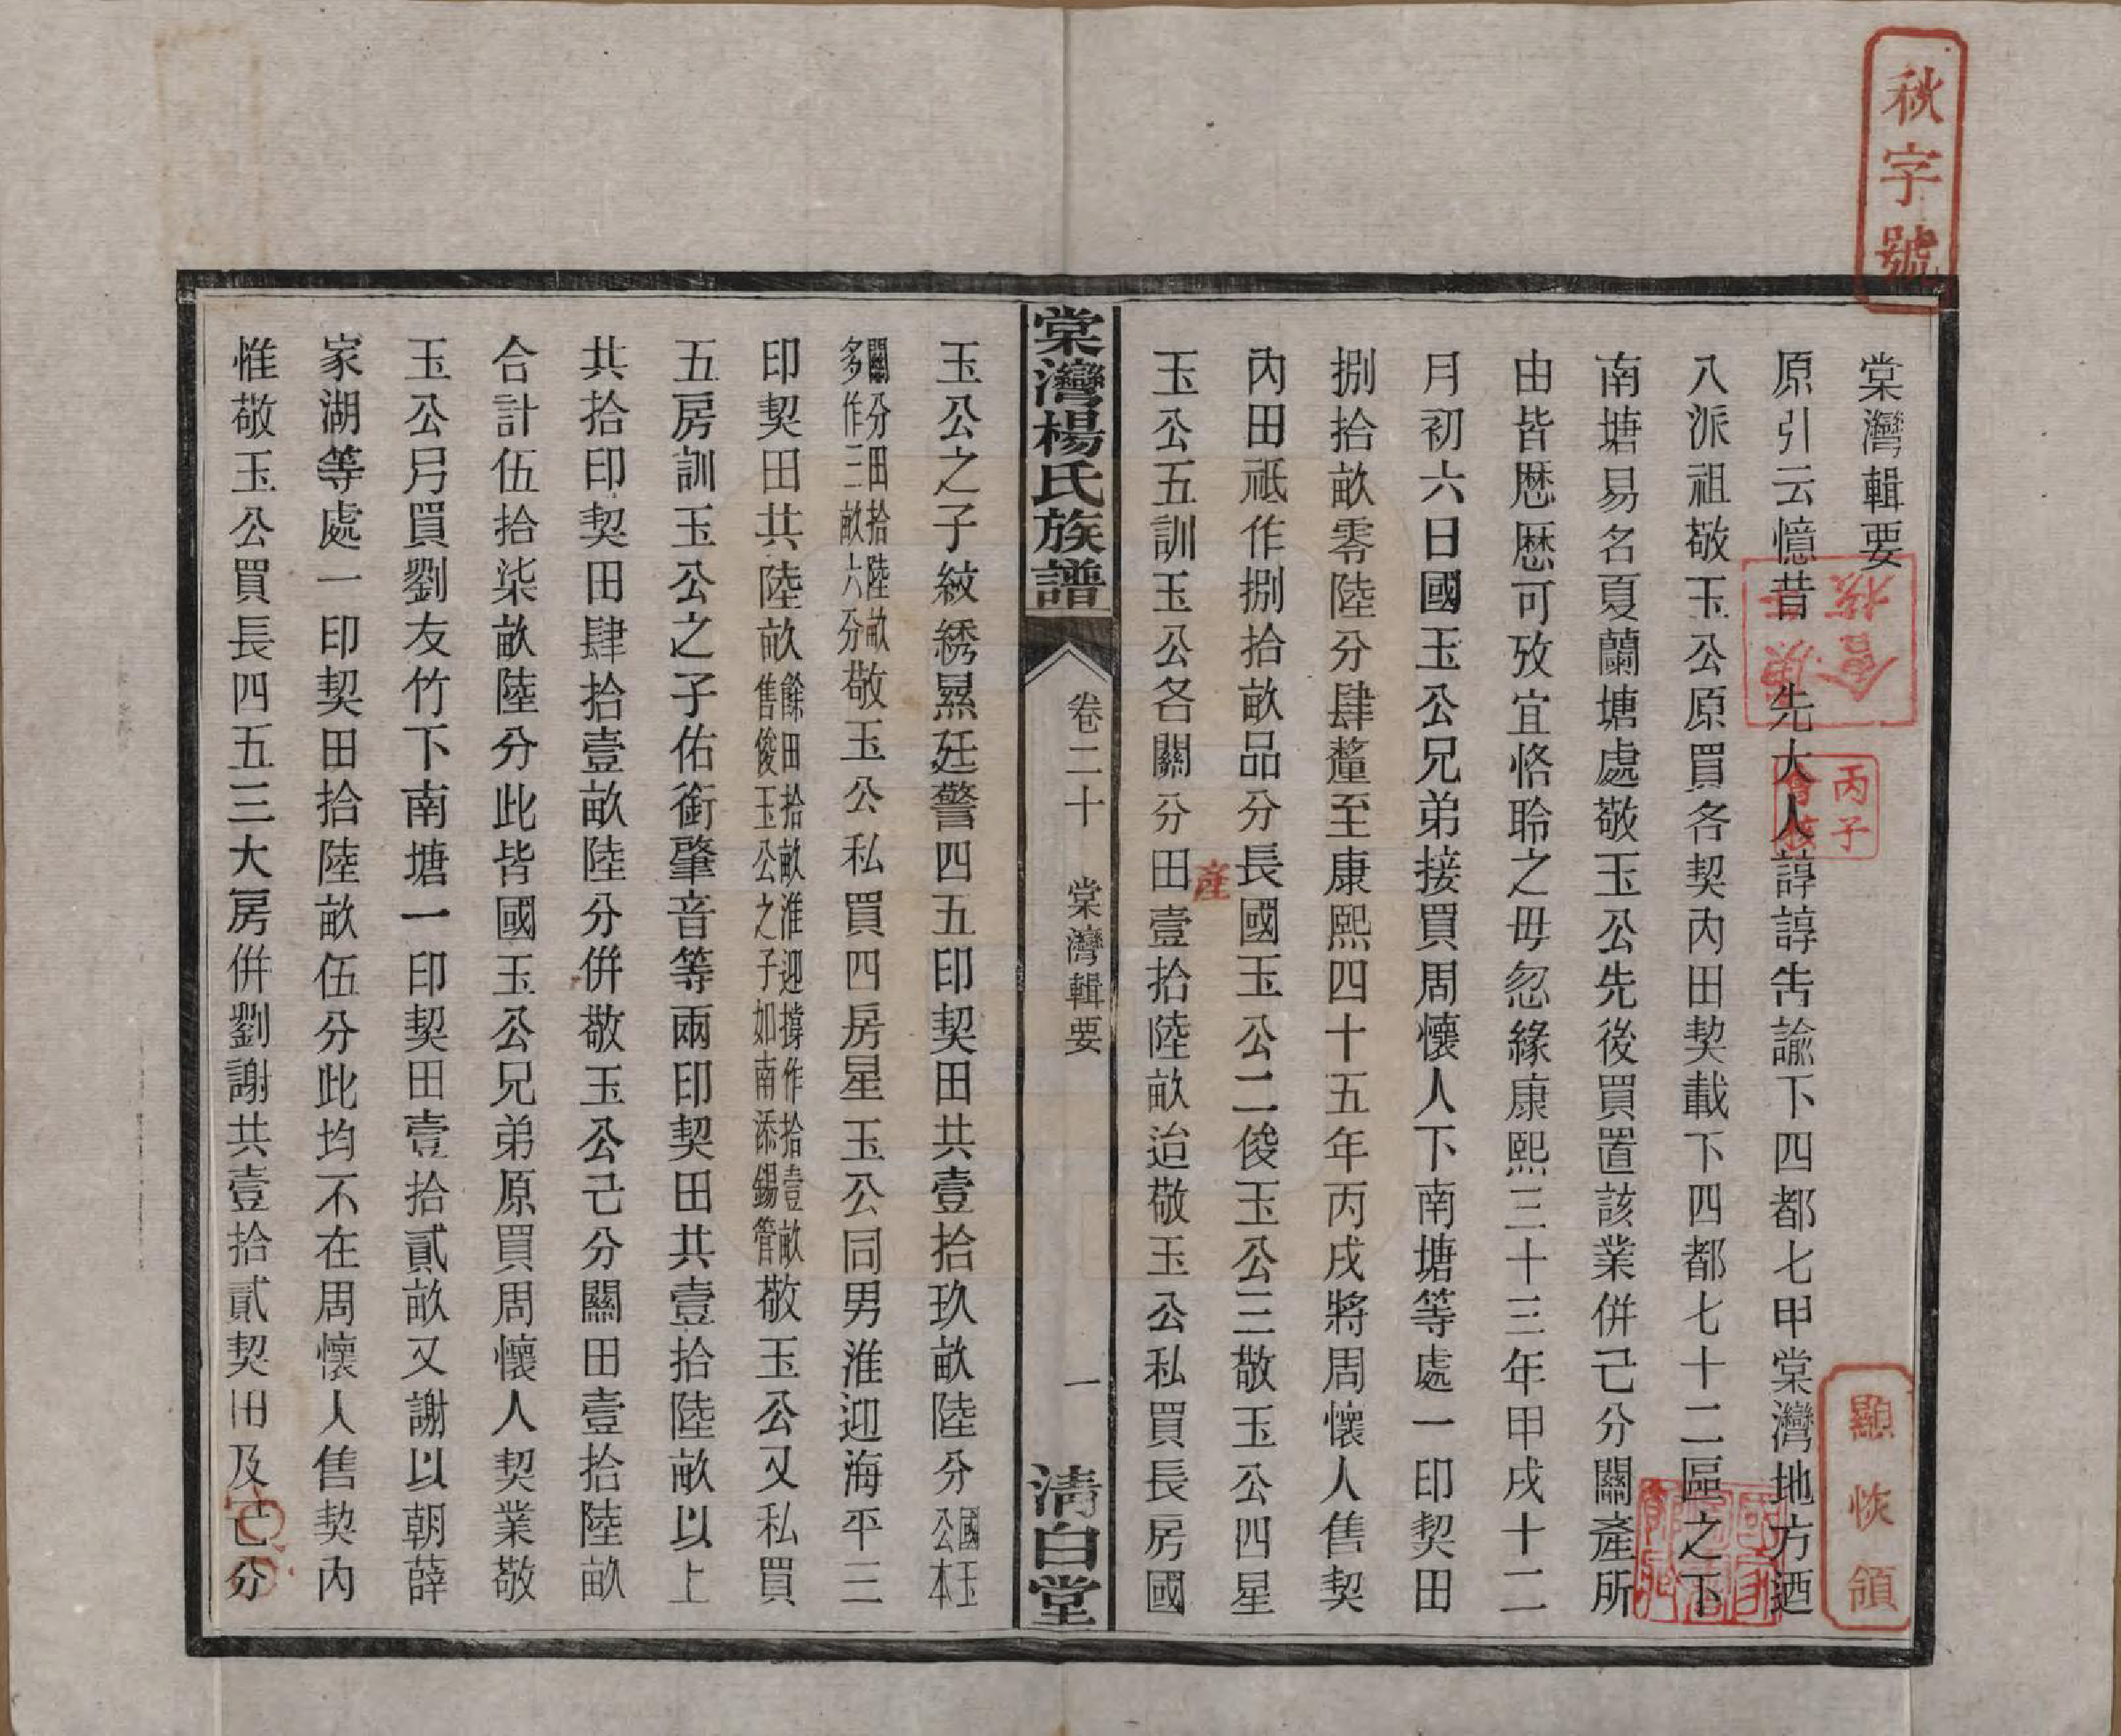 秋字號
棠灣輯要
原引云憶昔　先大人諄諄吿諭下四都七甲棠灣地方迺
八派祖敬玉公原買各契內田契載下四都七十二區之下
南塘易名夏蘭塘處敬玉公先後買置該業併己分關產所
由皆歷歷可攷宜恪聆之毋忽緣康熙三十三年甲戌十二
月初六日國玉公兄弟接買周懷人下南塘等處一印契田
捌拾畝零陸分肆釐至康熙四十五年丙戌將周懷人售契
內田祗作捌拾畝品分長國玉公二俊玉公三敬玉公四星
產
玉公五訓玉公各關分田壹拾陸畝迨敬玉公私買長房國
棠灣楊氏族譜
卷二十　棠灣輯要
一
清白堂
玉公之子紋綉㬎廷警四五印契田共壹拾玖畝陸分國玉公本
關分田拾陸畝多作三畝六分敬玉公私買四房星玉公同男淮迎海平三
印契田共陸畝餘田拾畝淮迎撐作拾壹畝售俊玉公之子如南添錫管敬玉公又私買
五房訓玉公之子佑銜肇音等兩印契田共壹拾陸畝以上
共拾印契田肆拾壹畝陸分併敬玉公己分關田壹拾陸畝
合計伍拾柒畝陸分此皆國玉公兄弟原買周懷人契業敬
玉公另買劉友竹下南塘一印契田壹拾貳畝又謝以朝薛
家湖等處一印契田拾陸畝伍分此均不在周懷人售契內
惟敬玉公買長四五三大房併劉謝共壹拾貳契田及己分
丙子會核
顯恢領